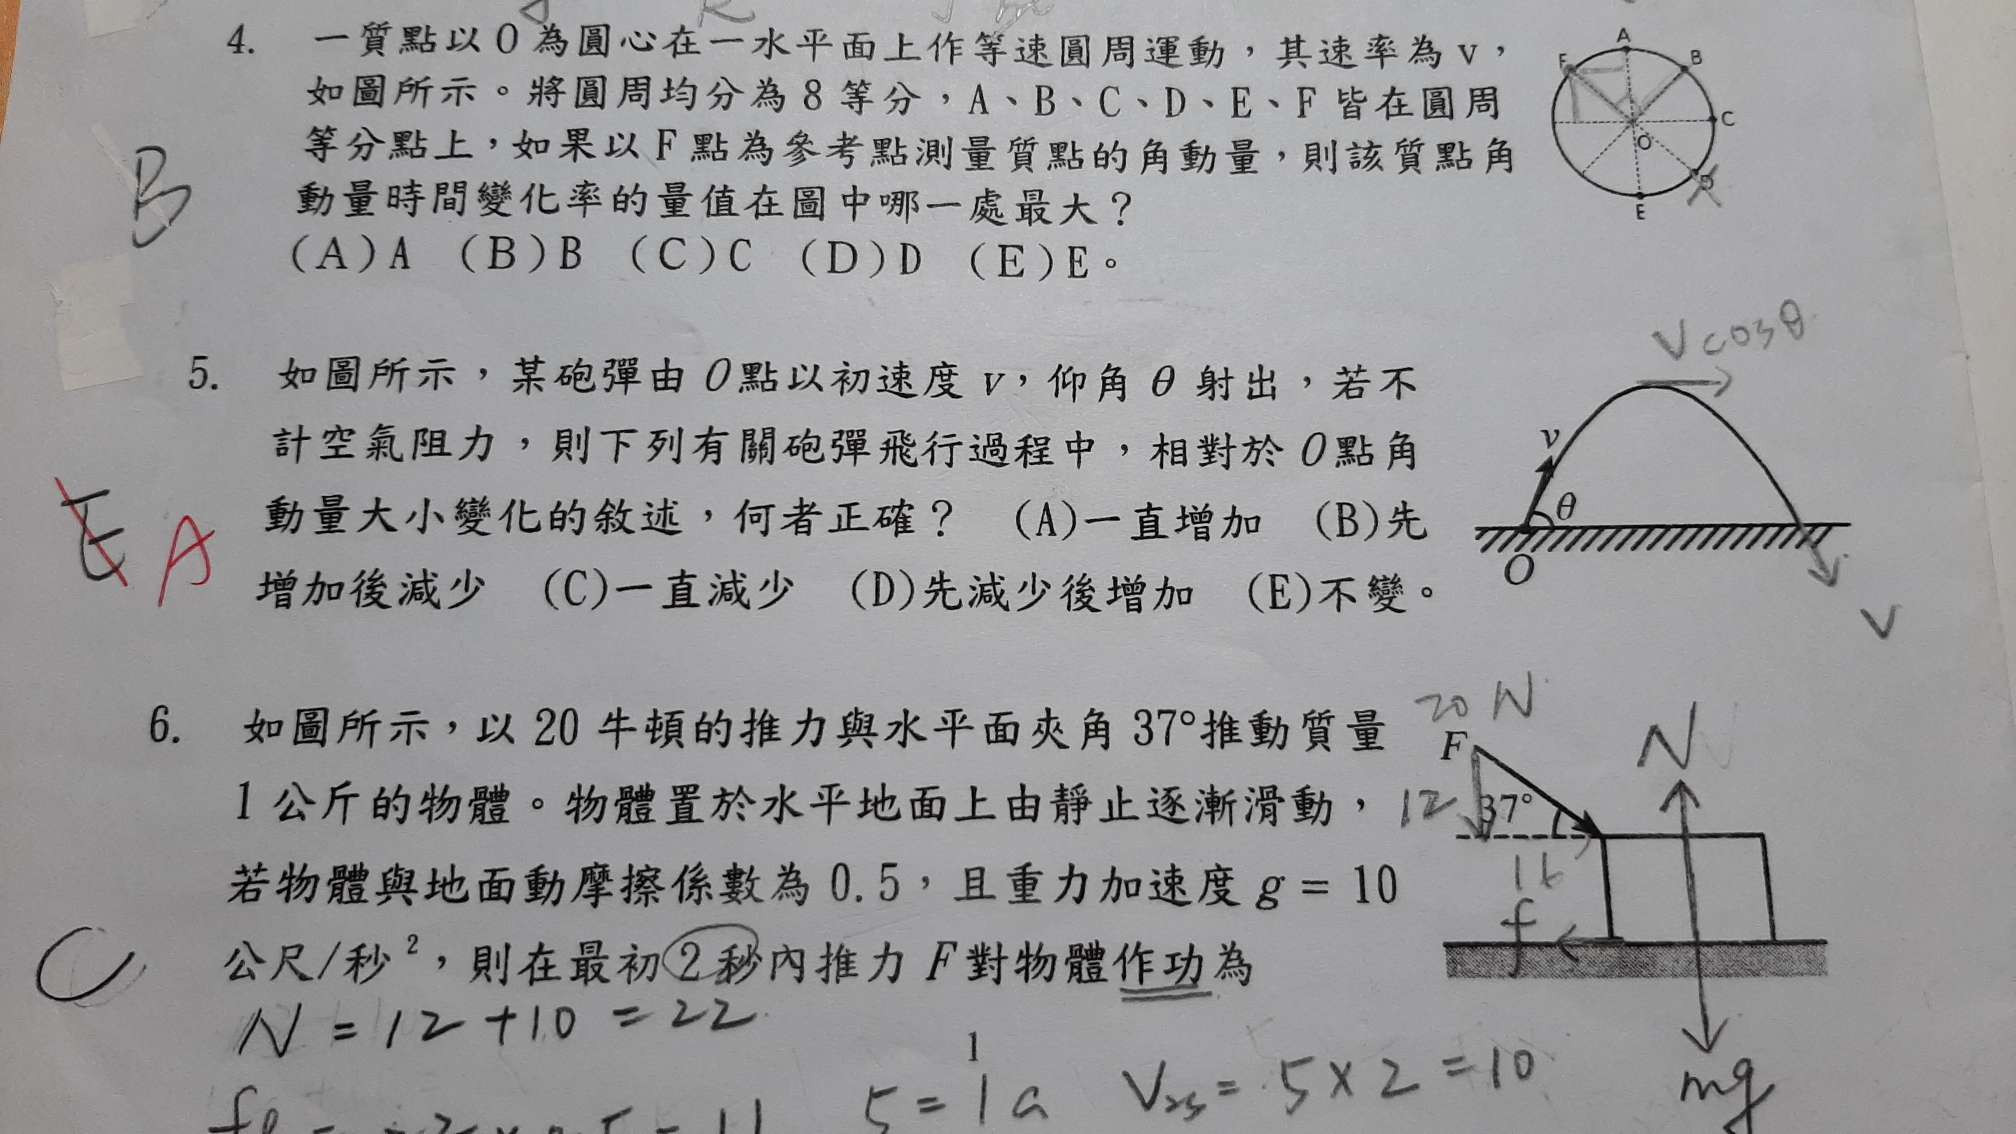 4. 一質點以O為圓心在一水平面上作等速圓周運動，其速率為v，
如圖所示。將圓周均分為8等分，A、B、C、D、E、F皆在圓周
等分點上，如果以F點為參考點測量質點的角動量，則該質點角
動量時間變化率的量值在圖中哪一處最大？
(A)A (B)B (C)C (D)D (E)E。
B
A
B
C
D
E
F
O
5. 如圖所示，某砲彈由O點以初速度v，仰角θ射出，若不
計空氣阻力，則下列有關砲彈飛行過程中，相對於O點角
動量大小變化的敘述，何者正確？ (A)一直增加 (B)先
增加後減少 (C)一直減少 (D)先減少後增加 (E)不變。
E A
v cosθ
v
θ
O
v
6. 如圖所示，以20牛頓的推力與水平面夾角37°推動質量
1公斤的物體。物體置於水平地面上由靜止逐漸滑動，
若物體與地面動摩擦係數為0.5，且重力加速度g = 10
公尺/秒²，則在最初2秒內推力F對物體作功為
C
20 N
F
12
37°
16
f
N
mg
N = 12 + 10 = 22
1
5 = 1a
V2s = 5×2 = 10